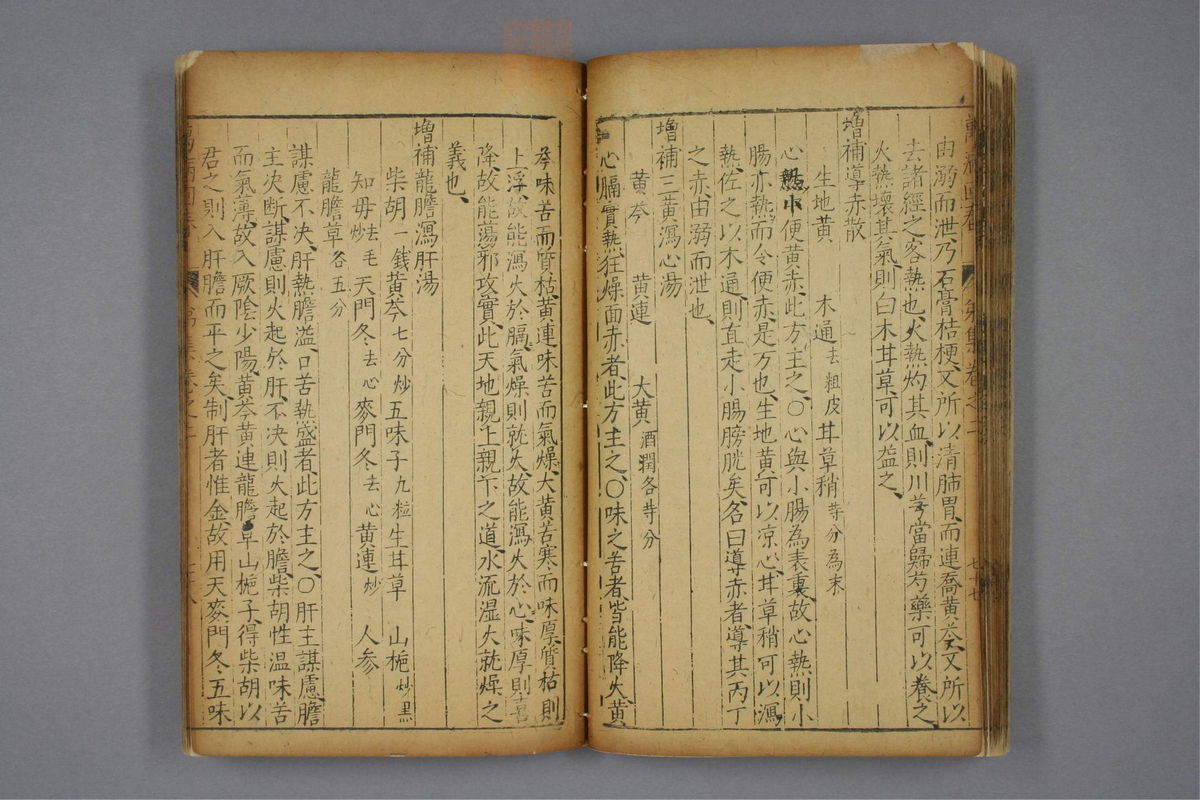 由溺而泄乃石膏桔梗又所以清肺胃而連喬黃芩又所以
去諸經之客熱也火熱灼其血則川芎當歸芍藥可以養之
火熱壞其氣則白木甘草可以益之
增補導赤散
生地黃 木通去粗皮 甘草稍等分為末
心熱小便黃赤此方主之〇心與小腸為表裏故心熱則小
腸亦熱而令便赤是方也生地黃可以涼心甘草稍可以瀉
熱佐之以木通則直走小腸膀胱矣名曰導赤者導其丙丁
之赤由溺而泄也
增補三黃瀉心湯
黃芩 黃連 大黃酒潤各等分
心膈實熱狂燥面赤者此方主之〇味之苦者皆能降火黃
芩味苦而質枯黃連味苦而氣燥大黃苦寒而味厚質枯則
上浮故能瀉火於膈氣燥則就火故能瀉火於心味厚則喜
降故能蕩邪攻實此天地親上親下之道水流湿火就燥之
義也
增補龍膽瀉肝湯
柴胡一錢 黃芩七分炒 五味子九粒 生甘草 山梔炒黑
知毋去毛炒 天門冬去心 麥門冬去心 黃連炒 人參
龍膽草各五分
謀慮不决肝熱膽溢口苦熱盛者此方主之〇肝主謀慮膽
主决斷謀慮則火起於肝不决則火起於膽柴胡性温味苦
而氣薄故入厥陰少陽黃芩黃連龍膽草山梔子得柴胡以
君之則入肝膽而平之矣制肝者惟金故用天麥門冬五味